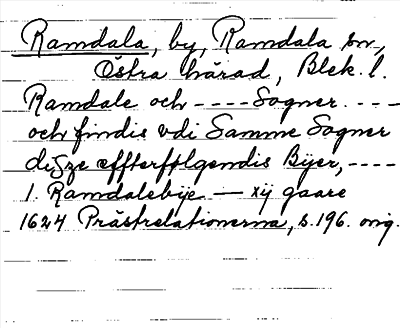 Ramdala, by, Ramdala sn,
Östra härad, Blek. l.
Ramdale och - - - - Sogner. - - -
och findis vdi Samme Sogner
disze effterfølgendis Bijer, - - - -
1. Ramdalebije — xij gaare
1624 Prästrelationerna, s. 196. orig.